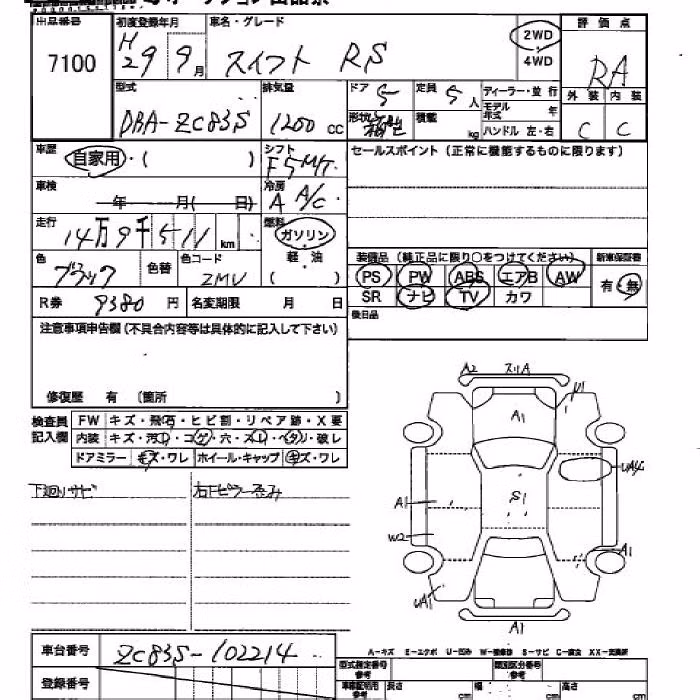 出品番号 初度登録年月 車名・グレード 評価点
7100 H29 9月 スイフト RS 2WD 4WD RA
型式 排気量 ドア 5 定員 5人 ディーラー・並行 外装 内装
DBA-ZC83S 1200cc 形状 積載 kg モデル年式 年 C C
ハンドル 左・右
車歴 自家用・( ) シフト F5M/T セールスポイント(正常に機能するものに限ります)
車検 年 月( 日) 冷房 A A/C
走行 14万9千511km 燃料 ガソリン
軽・油
( )
色 ブラック 色替 色コード ZMV
装備品(純正品に限り○をつけてください) 新車保証書
PS PW ABS エアB AW 有・無
SR ナビ TV カワ
R券 9380円 名変期限 月 日
後日品
注意事項申告欄(不具合内容等は具体的に記入して下さい)
修復歴 有 (箇所 )
検査員記入欄
FW キズ・飛石・ヒビ割・リペア跡・X要
内装 キズ・汚れ・コゲ・穴・スレ・ヘタリ・破レ
ドアミラー キズ・ワレ ホイール・キャップ キズ・ワレ
下廻りサビ
A2
A1
S1
A1
W2
UA1
A1
A1
車台番号 ZC83S-102214
登録番号
A-キズ E-エクボ U-凹み W-補修跡 S-サビ C-腐食 XX-交換済
型式指定番号 参考 類別区分番号 参考
長さ cm 幅 cm 高さ cm